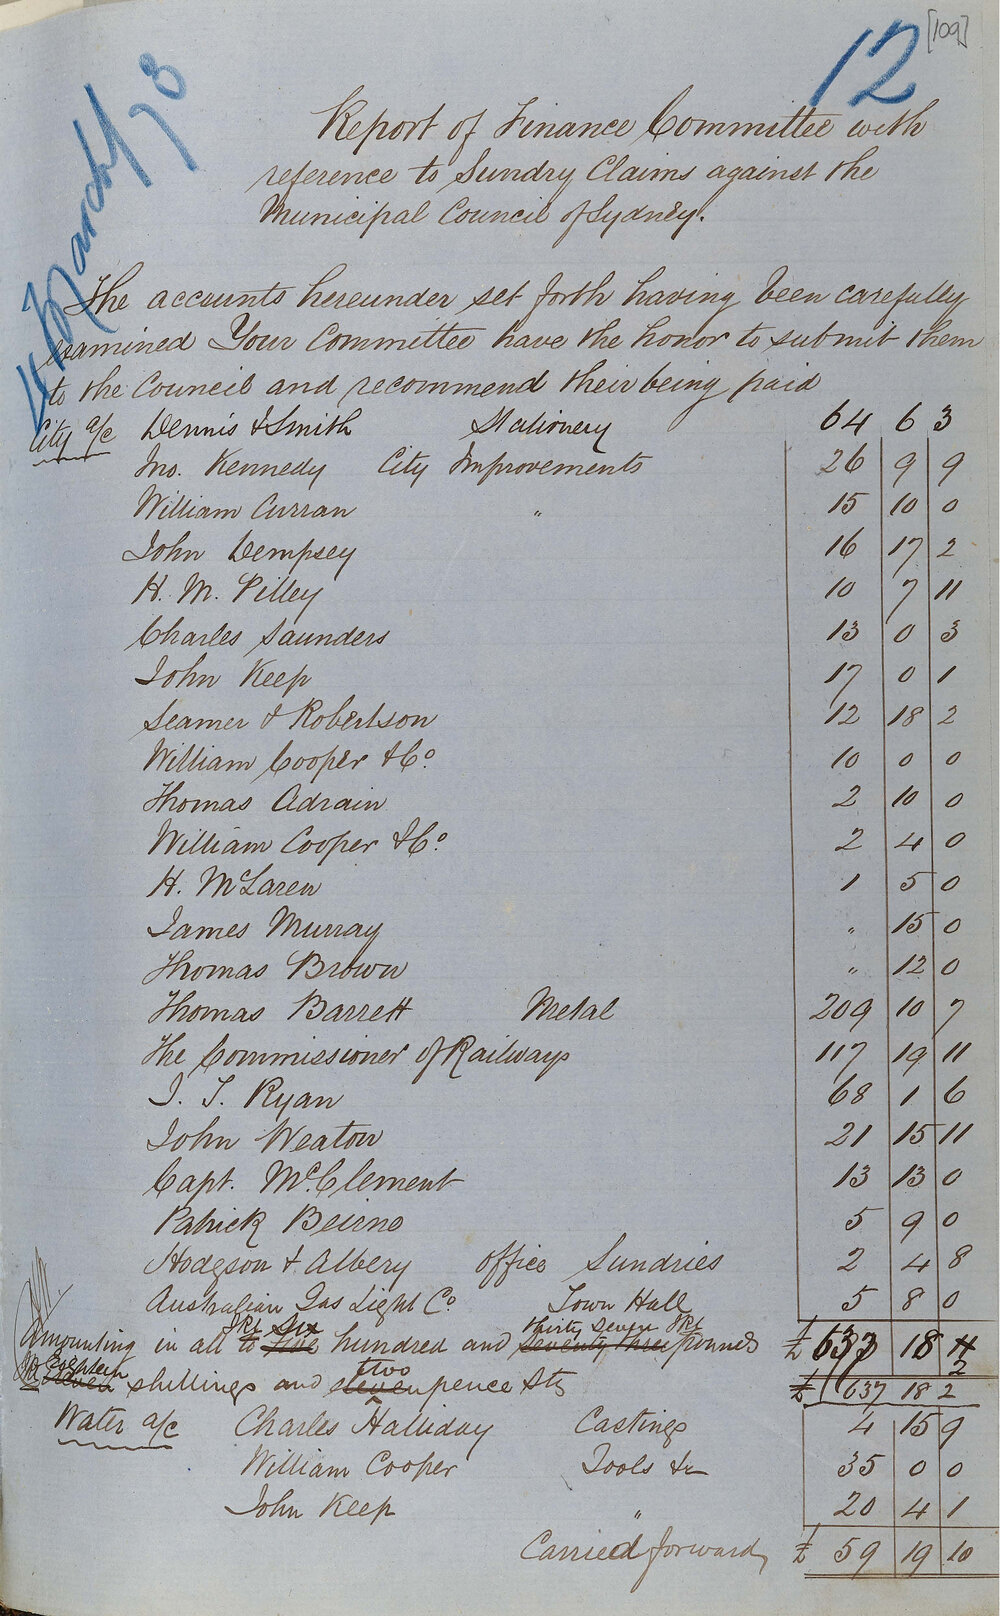 [109]
12
4 March/73
Report of Finance Committee with
reference to Sundry Claims against the
Municipal Council of Sydney.
The accounts hereunder set forth having been carefully
examined Your Committee have the honor to submit them
to the Council and recommend their being paid
City a/c Dennis & Smith Stationery 64 6 3
Jno. Kennedy City Improvements 26 9 9
William Curran " 15 10 0
John Dempsey 16 17 2
H. M. Pilley 10 7 11
Charles Saunders 13 0 3
John Keep 17 0 1
Seamer & Robertson 12 18 2
William Cooper & Co. 10 0 0
Thomas Adrain 2 10 0
William Cooper & Co. 2 4 0
H. McLaren 1 5 0
James Murray " 15 0
Thomas Brown " 12 0
Thomas Barrett Metal 209 10 7
The Commissioner of Railways 117 19 11
J. T. Ryan 68 1 6
John Weaton 21 15 11
Capt. McClement 13 13 0
Patrick Beirne 5 9 0
Hodgson & Albery Office Sundries 2 4 8
Australian Gas Light Co. Town Hall 5 8 0
six thirty seven
Amounting in all to five hundred and seventy three pounds £ 637 18 2
eighteen two
eleven shillings and eleven pence Stg £ 637 18 2
Water a/c Charles Halliday Castings 4 15 9
William Cooper Tools &c 35 0 0
John Keep " 20 4 1
Carried forward, £ 59 19 10